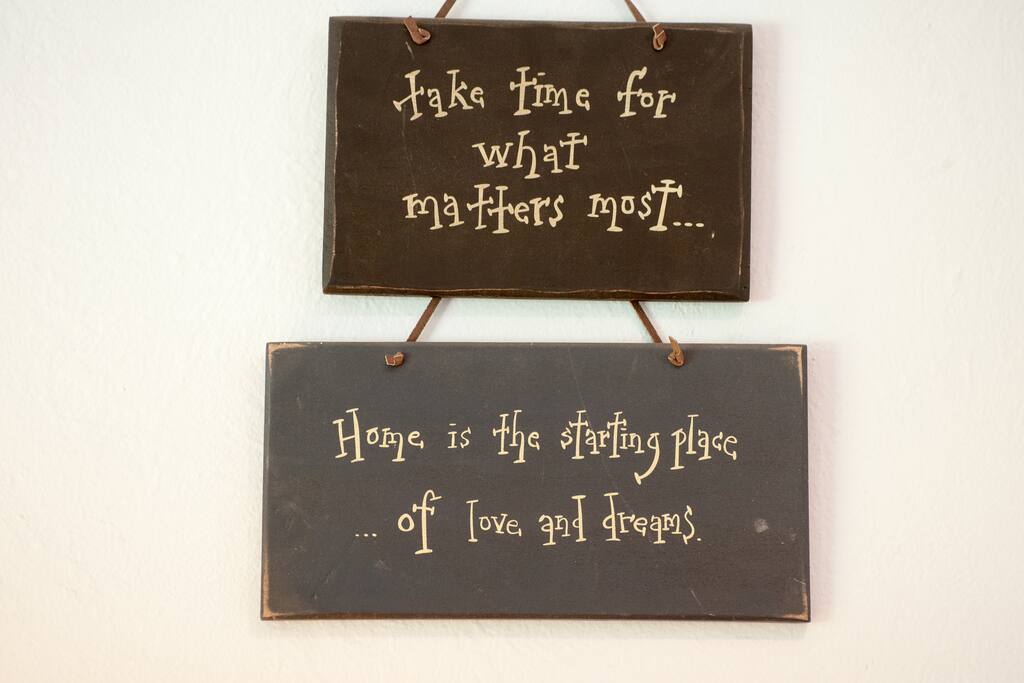 take time for
what
matters most...
Home is the starting place
... of love and dreams.